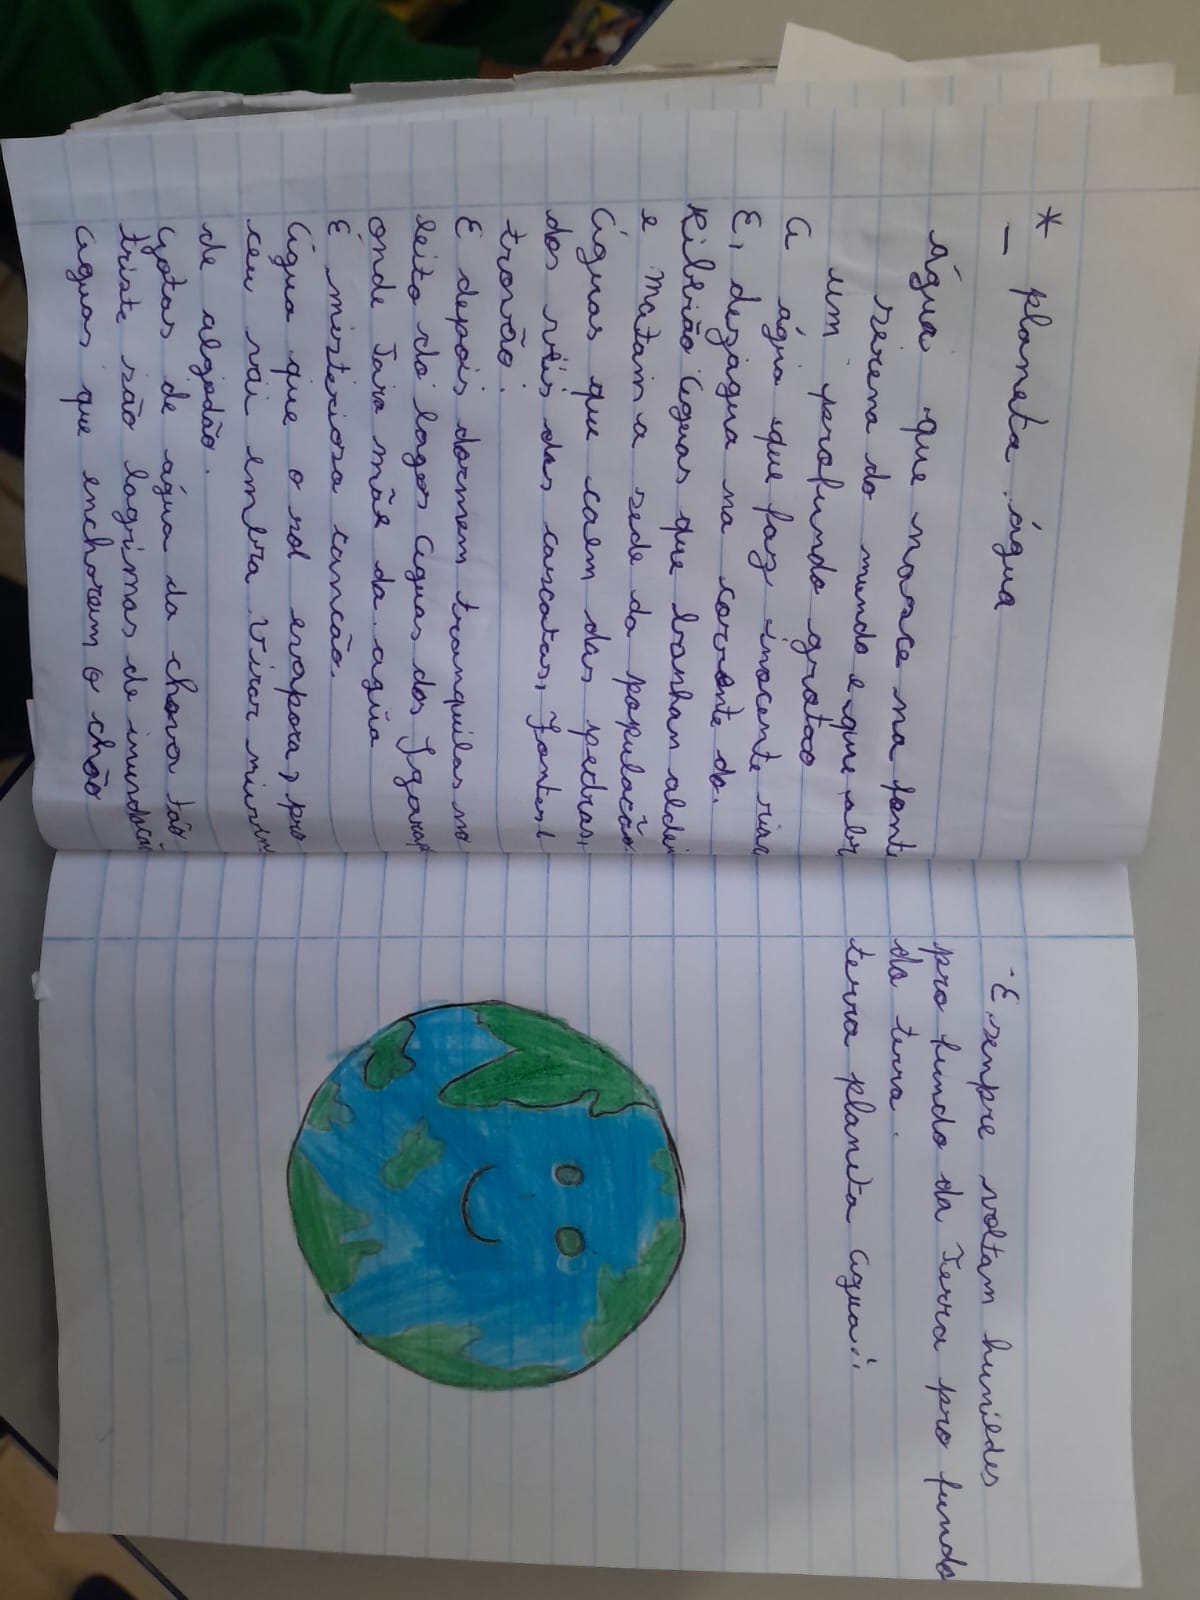 * planeta água
Água que nasce na fonte
serena do mundo e que abr
um profundo grotao
a água que faz inocente riac
E, deságua na corrente do.
Ribeirão aguas que banham aldei
e matam a sede da população
Águas que caem das pedras,
dos véis das cascatas,
trovão.
E depois dormem tranquilas no
leito do lagos aguas dos Igarap
onde Iara mãe da água
É misteriosa canção.
Água que o sol evapora, pro
ceu vai embra virar nuvem
de algodão.
Gotas de água da chuva tão
triste são lagrimas de inundação
aguas que encharcam o chão
- E sempre voltam humildes
pro fundo da Terra pro fundo
da terra.
terra planeta agua..